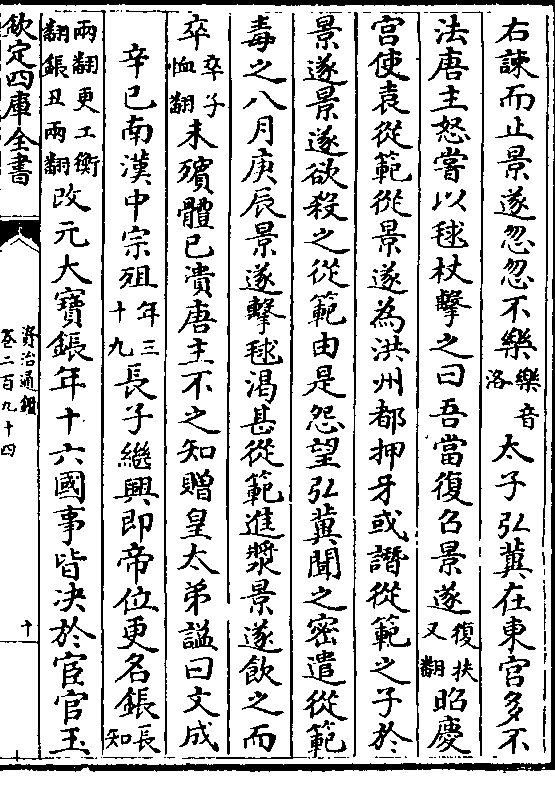 右諫而止景遂忽忽不樂樂音洛太子弘冀在東宮多不
法唐主怒嘗以毬杖擊之曰吾當復召景遂復扶又翻昭慶
宮使袁從範從景遂為洪州都押牙或譖從範之子於
景遂景遂欲殺之從範由是怨望弘冀聞之密遣從範
毒之八月庚辰景遂擊毬渴甚從範進漿景遂飲之而
卒卒子恤翻未殯體已潰唐主不之知贈皇太弟諡曰文成
辛巳南漢中宗殂年三十九長子繼興即帝位更名鋹長知
兩翻更工衡翻鋹丑兩翻改元大寶鋹年十六國事皆決於宦官玉
欽定四庫全書
資治通鑑
卷二百九十四
十